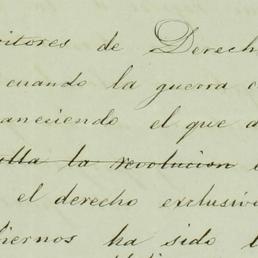 itores de Derech
cuando la guerra c
aneciendo el que a
alla la revolucion
el derecho exclusiv
iernos ha sido l